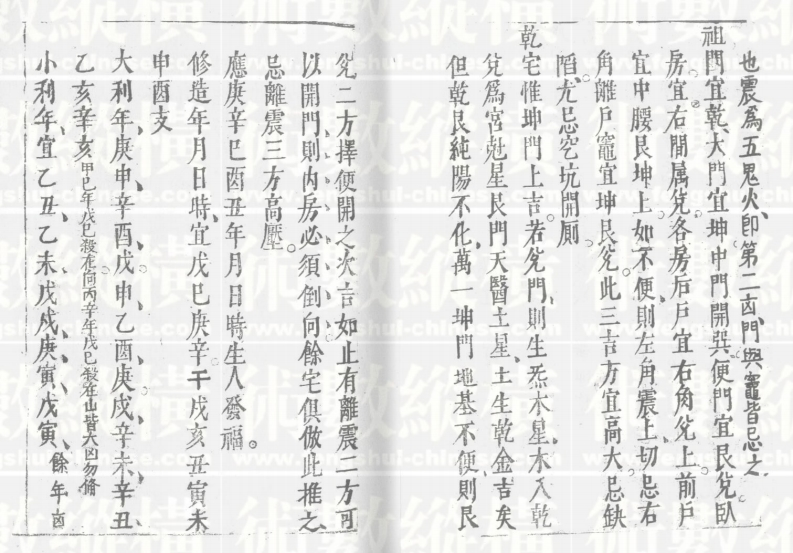 也震爲五鬼火、即第二凶、門與竈皆忌之、
祖門宜乾、大門宜坤中門開巽便門宜艮兌臥
房宜右開属兌、各房后戸宜右角兌上前戸
宜中腰艮坤上。如不便、則左角震上、切忌右
角離戸竈宜坤艮兌、此三吉方宜高大。忌缺
陷、尤忌空坑開厠
乾宅惟坤門上吉。若兌門、則生炁木星、木入乾
兌爲宮尅星艮門天醫土星、土生乾金吉矣
但乾艮純陽不化、萬一坤門地基不便、則艮
兌二方擇便開之次吉如止有離震二方可
以開門、則内房必須倒向餘宅俱倣此推之、
忌離震三方高壓。
應庚辛巳酉丑年月日時生人發福。
修造年月日時、宜戊巳庚辛干戌亥丑寅未
申酉支
大利年、庚申、辛酉、戊申、乙酉、庚戌、辛未、辛丑、
乙亥辛亥甲巳年戊巳殺在向丙辛年戊巳殺在山皆大凶勿脩
小利年、宜乙丑、乙未、戊戌、庚寅、戊寅、餘年凶
www.fengshui-chinese.com